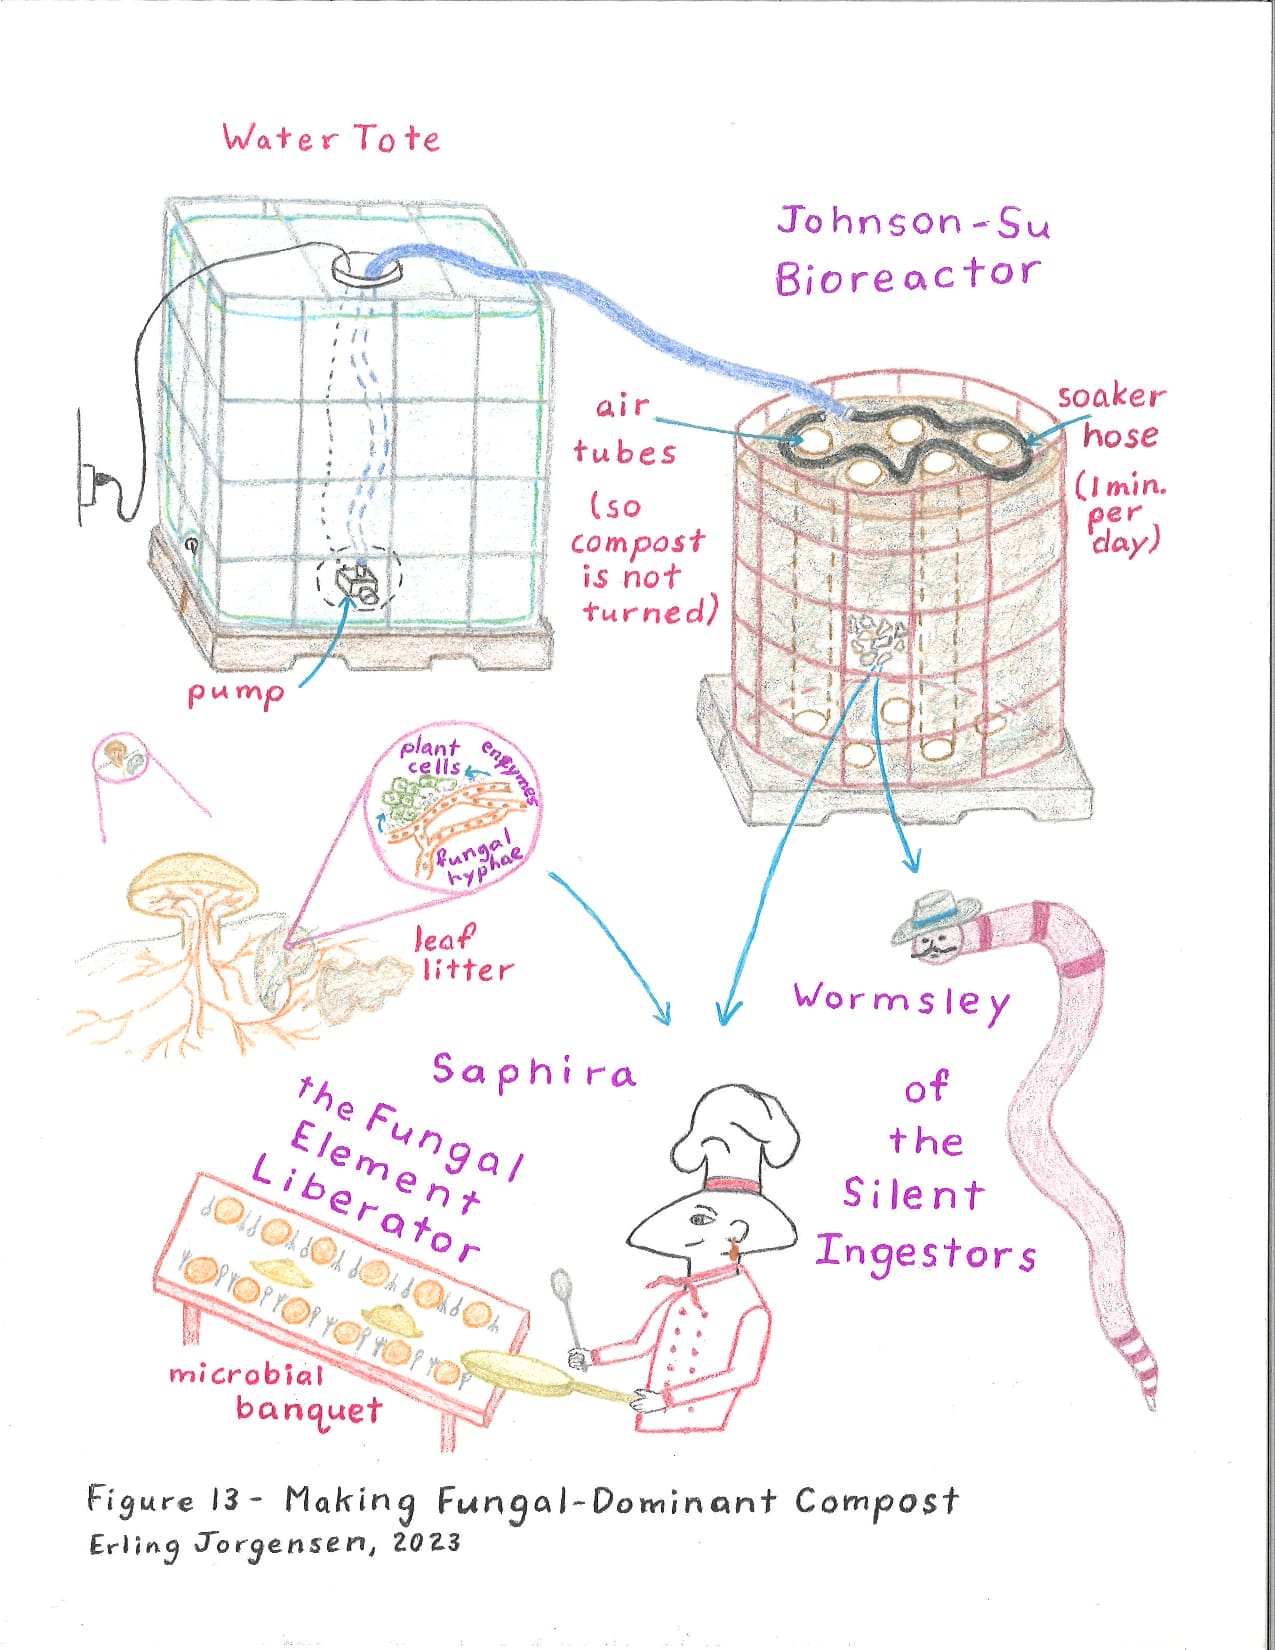 Water Tote
Johnson-Su
Bioreactor
air
tubes
(so
compost
is not
turned)
soaker
hose
(1 min.
per
day)
pump
plant
cells
enzymes
fungal
hyphae
leaf
litter
Wormsley
of
the
Silent
Ingestors
Saphira
the Fungal
Element
Liberator
microbial
banquet
Figure 13 - Making Fungal-Dominant Compost
Erling Jorgensen, 2023